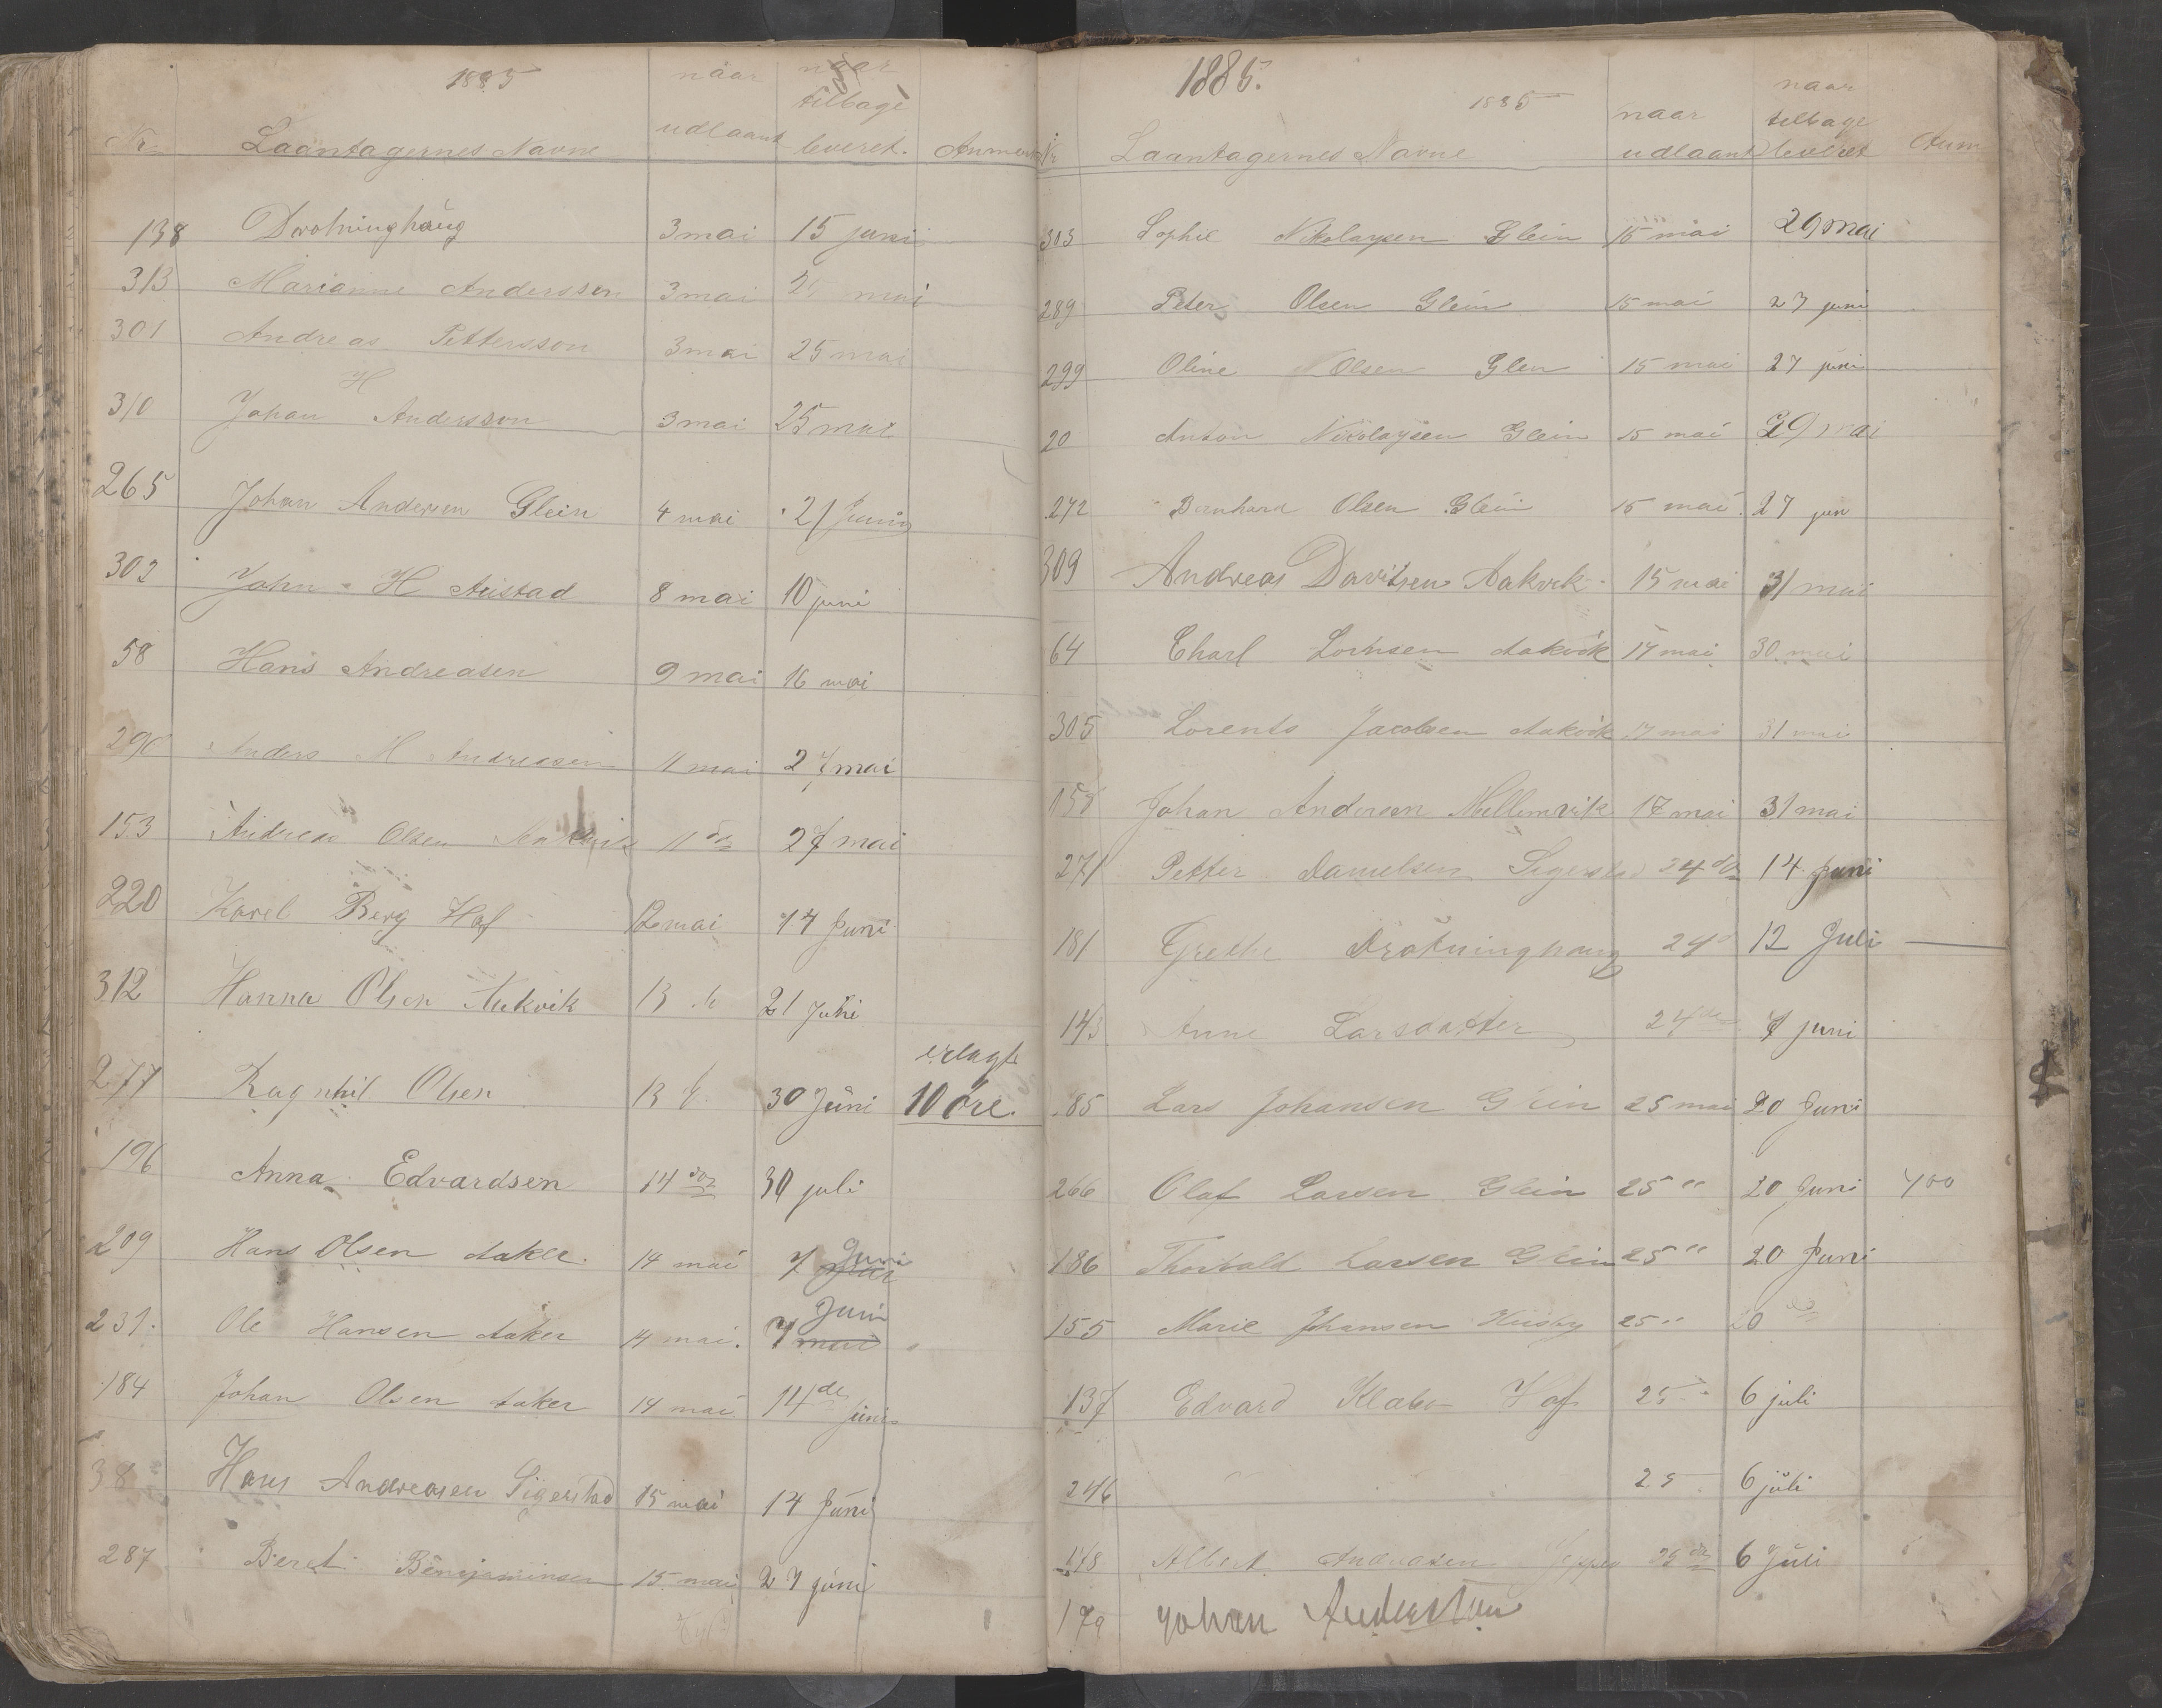 1885
Nr Laantagernes Navne naar udlaant naar tilbage leveret. Anmerk
138 Drotninghaug 3 mai 15 juni
313 Marianne Anderssen 3 mai 25 mai
301 Andreas Pettersson 3 mai 25 mai
310 Johan H Andersson 3 mai 25 mai
265 Johan Andersen Glein 4 mai 21 Juni
302 John H Aristad 8 mai 10 juni
58 Hans Andreasen 9 mai 16 mai
290 Anders M Andreasen 11 mai 27 mai
153 Andreas Olsen Aakvik 11 do 27 mai
220 Karel Berg Hof 12 mai 14 Juni
312 Hanna Olsen Aakvik 13 do 21 Juni
277 Ragnhil Olsen 13 30 Juni erlagt 10 öre.
196 Anna Edvardsen 14 do 30 juli
209 Hans Olsen Aaker. 14 mai 7 Juni
231. Ole Hansen Aaker 14 mai. 7 mai Juni
184 Johan Olsen Aaker 14 mai 14de juni
38 Hans Andreasen Sigerstad 15 mai 14 Juni
287 Beret Benejaminsen 15 mai 27 juni
1885.
1885
Nr Laantagernes Navne naar udlaant naar tilbage leveret Anm
303 Sophie Nikolaysen Glein 15 mai 29 mai
289 Peter Olsen Glein 15 mai 27 juni
299 Oline Olsen Glein 15 mai 27 juni
20 Anton Nikolaysen Glein 15 mai 29 mai
272 Bernhard Olsen Glein 15 mai. 27 jun
309 Andreas Davitsen Aakvik 15 mai 31 mai
64 Charl Lorntsen Aakvik 17 mai 30 mai
305 Lorents Jacobsen Aakvik 17 mai 31 mai
158 Johan Andersen Mellemvik 17 mai 31 mai
271 Petter Danielsen Sigerstad 24 do 14 Juni
181 Grethe Drotninghaug 24 12 Juli
143 Anne Larsdatter 24 do 7 juni
85 Lars Johansen Glein 25 mai 20 Juni
266 Olaf Larsen Glein 25 " 20 Juni 400
186 Thorvald Larsen Glein 25 " 20 Juni
155 Marie Johansen Husby 25 " 20 do
137 Edvard Klabo Hof 25 " 6 juli
246 25 6 juli
178 Albert Andreasen 25 do 6 Juli
179 Johan Anderssen